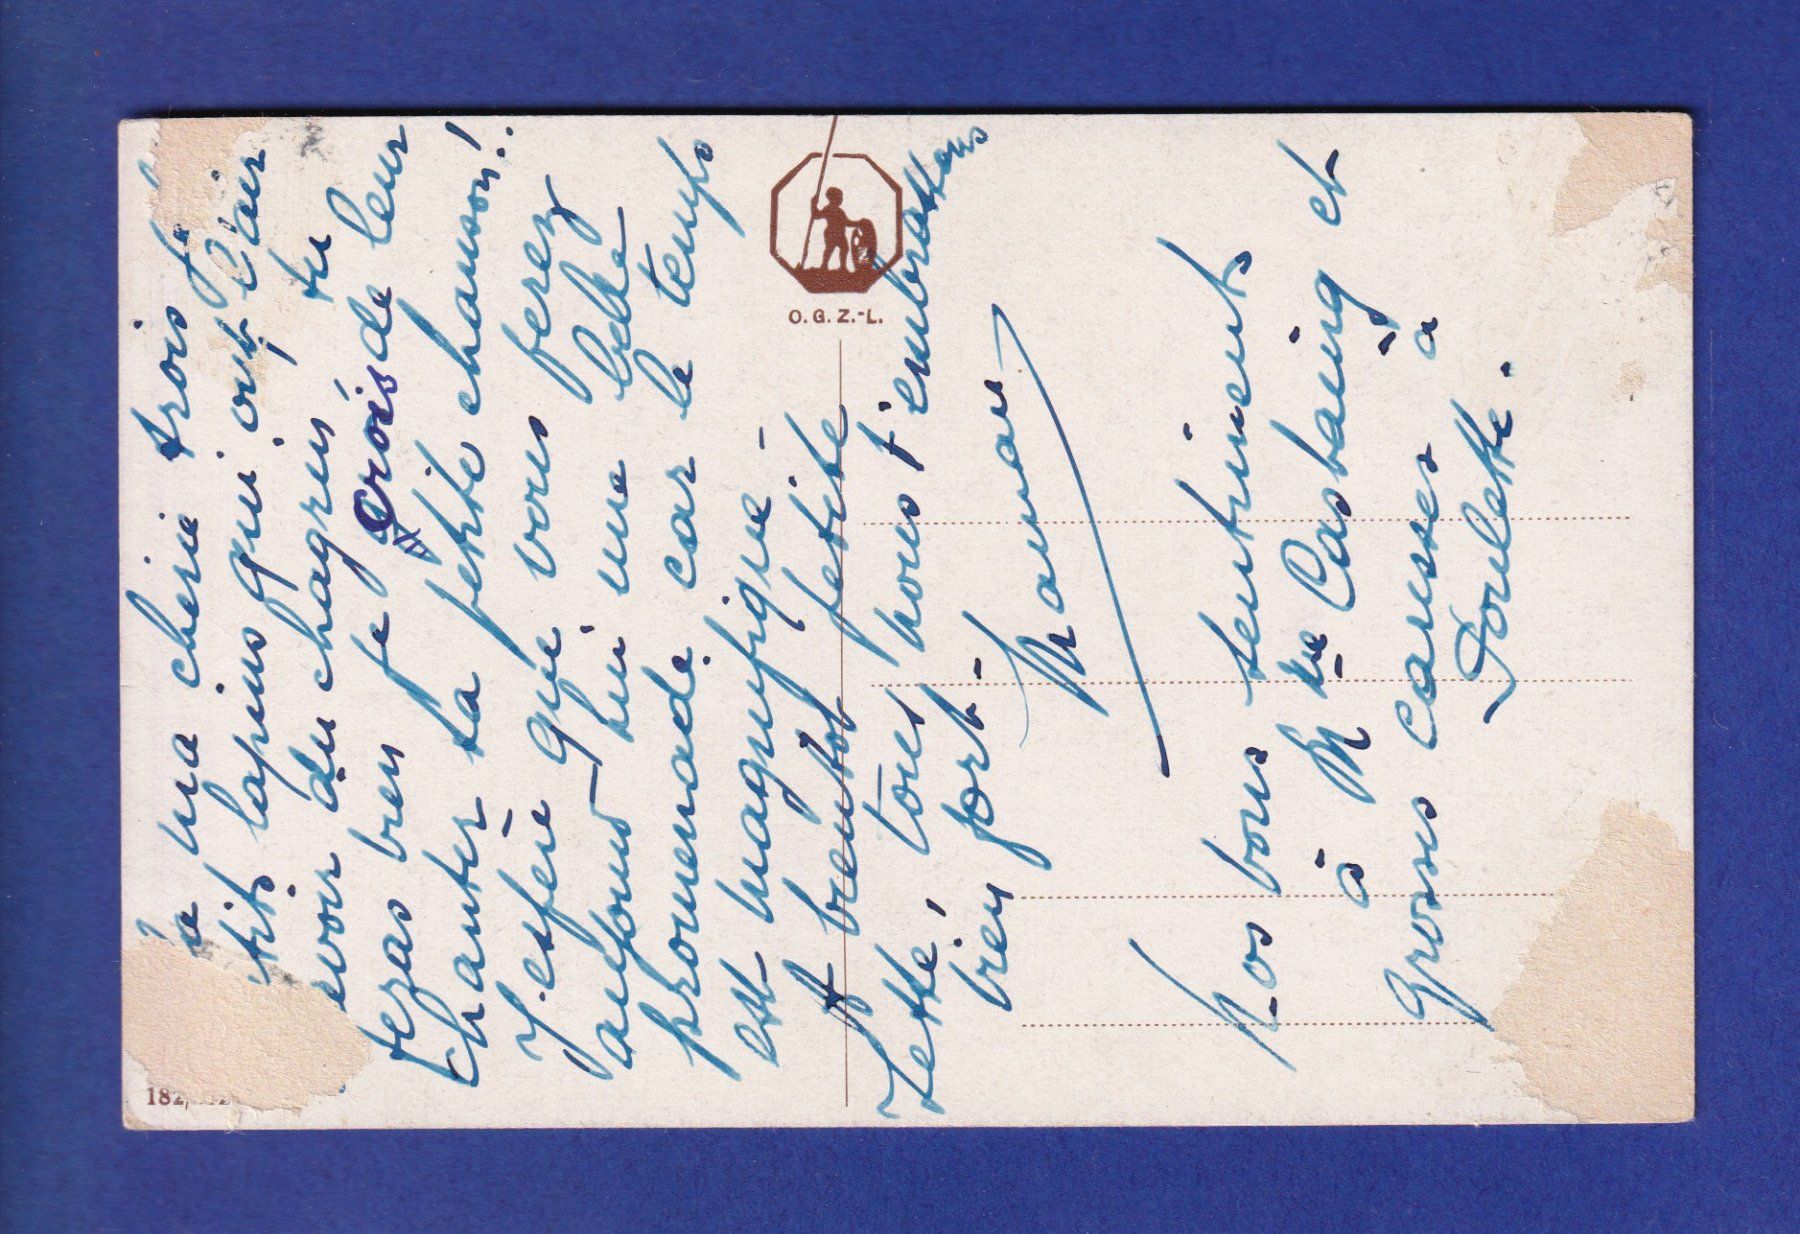 à ma chérie trois
tits lapins qui ont l'air
avoir du chagrin tu
feras bien je crois de leur
chanter ta petite chanson!
J'espère que vous ferez
aujourd'hui une belle
promenade car le temps
est magnifique -
A bientôt petite
Zette, tous nous t'embrassons
bien fort -
Maman
Nos bons sentiments
à Mme Casbaing et
grosses caresses à
Poulette.
O.G.Z.-L.
182